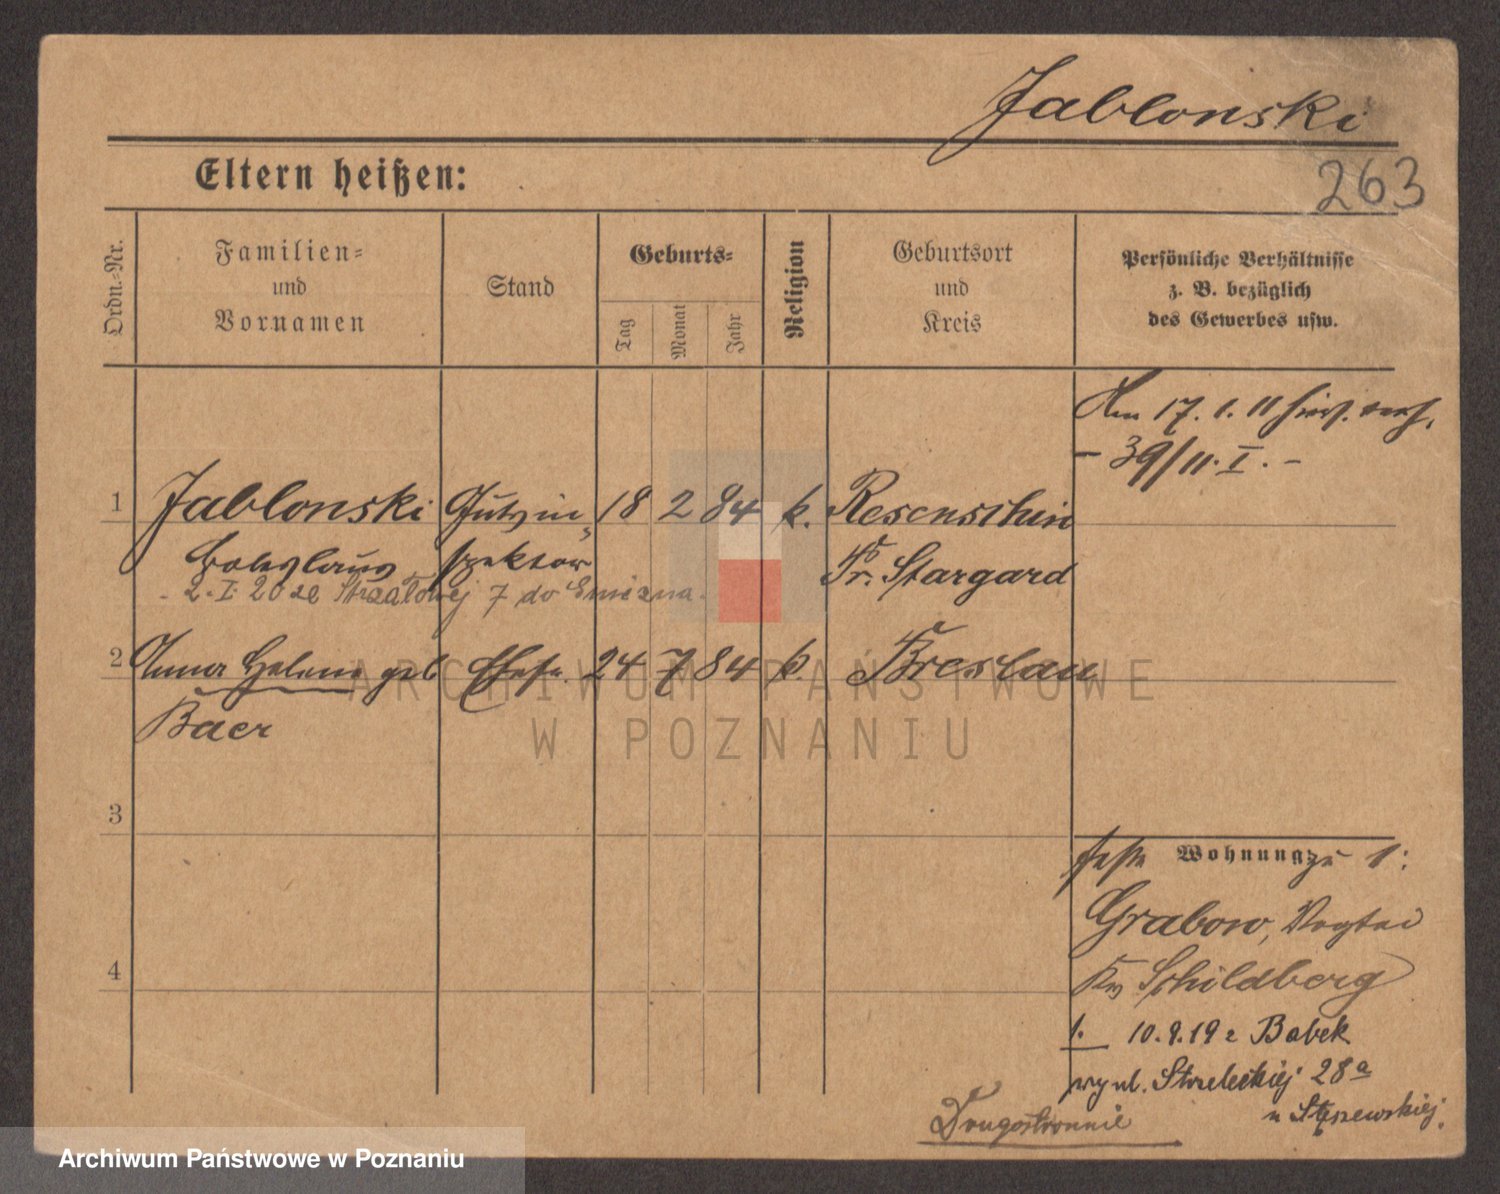 Jablonski
263
Eltern heißen:
Ordn.-Nr.
Familien-
und
Vornamen
Stand
Geburts-
Tag
Monat
Jahr
Religion
Geburtsort
und
Kreis
Persönliche Verhältnisse
z. B. bezüglich
des Gewerbes usw.
Am 17. 1. 11
- 39/11. I. -
1 Jablonski Gutsin- 18 2 84 k. Resenschin
Boleslaus spektor Pr. Stargard
- 2. I. 20 ze Strzałowej 7 do
2 Anna Helene geb Ehefr. 24 7 84 k. Breslau
Baer
3
4
feste Wohnung zu 1:
Grabow, Vogtei
Kr Schildberg
1. 10.9.19 z Babek
przy ul. Strzeleckiej 28a
u Stęszewskiej.
Drugostronnie
ARCHIWUM PAŃSTWOWE
W POZNANIU
Archiwum Państwowe w Poznaniu